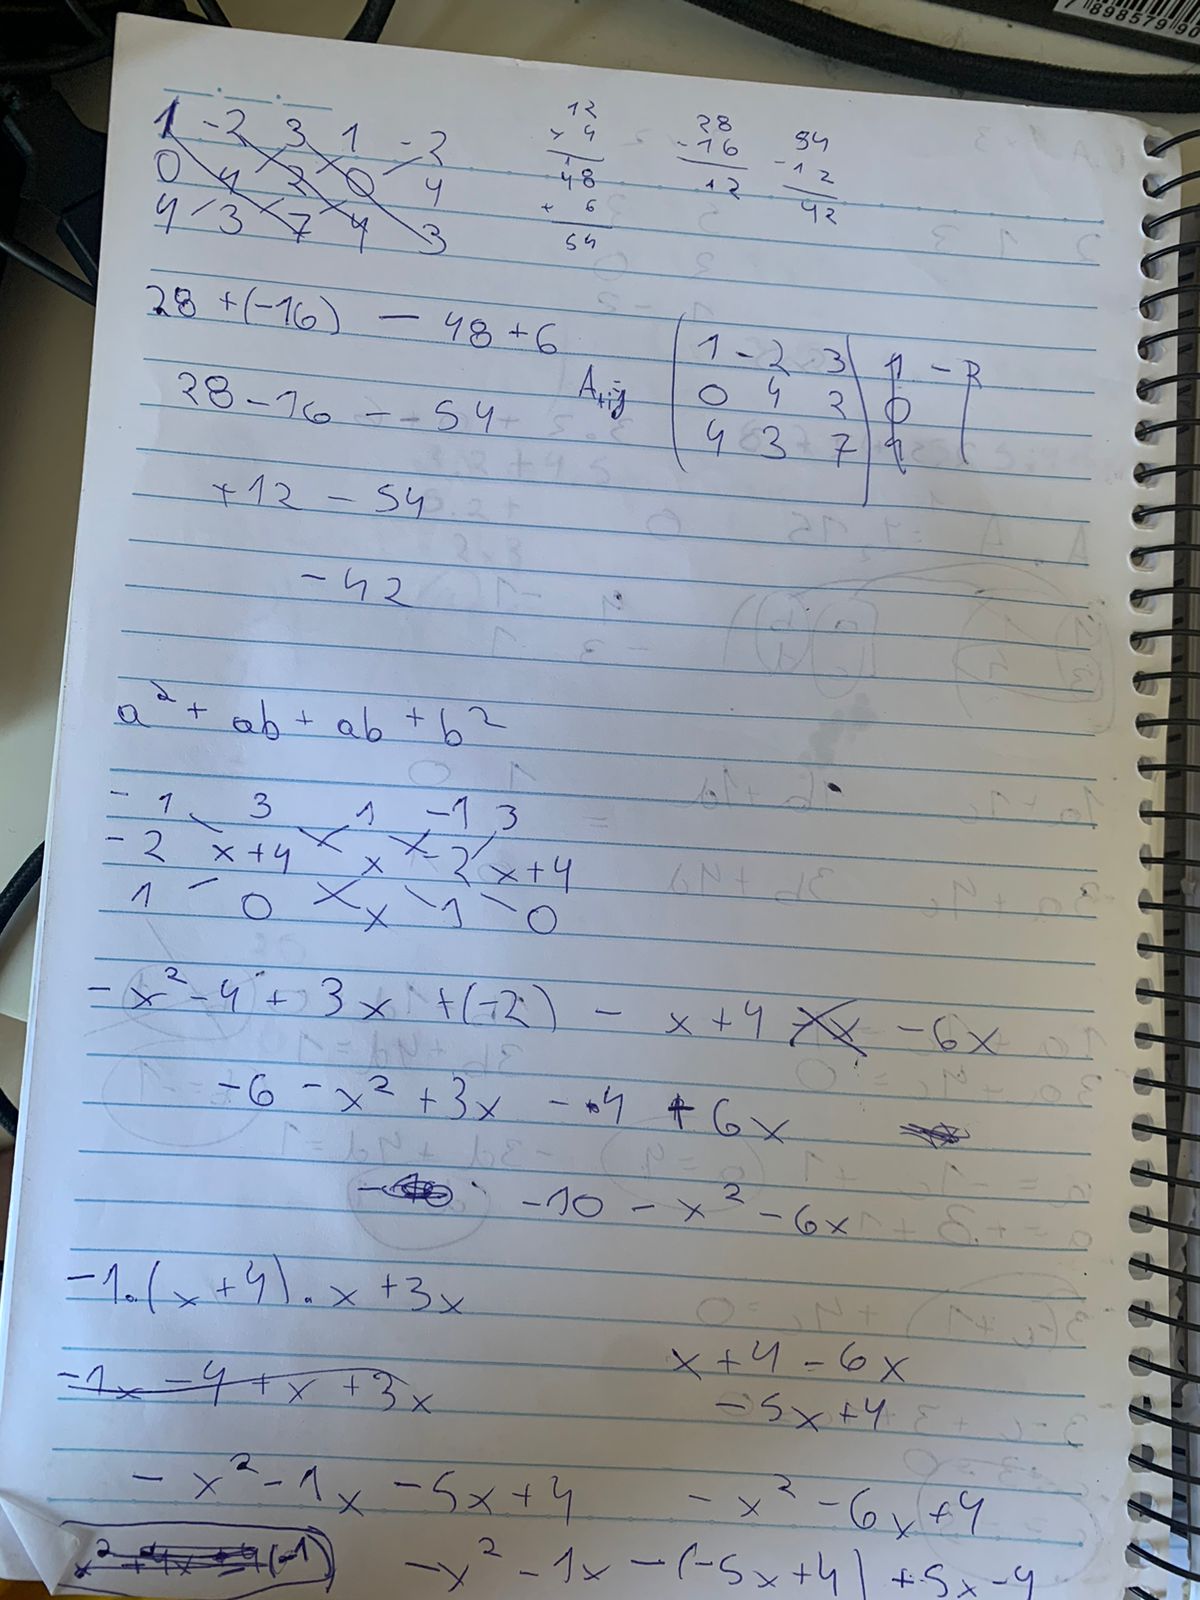 7 898579 90
1 -2 3 1 -2
0 4 2 0 4
4 3 7 4 3
12
x 4
48
+ 6
54
28
-16
12
54
-12
42
28 +(-16) - 48+6
28-16 - - 54
+12 - 54
-42
1 -2 3 1 -2
0 4 2 0
4 3 7 4
a² + ab + ab + b²
-1 3 1 -1 3
-2 x+4 x -2 x+4
1 0 x 1 0
-x²-4 + 3x +(-2) - x+4 -6x
-6 -x² +3x - 4 +6x
-10 - x² -6x
-1.(x+4).x +3x
-1x -4 +x +3x
x+4 -6x
-5x+4
-x²-1x -5x+4
-x² -6x +4
x²+4x+4(-1)
-x² -1x -(-5x+4) +5x-4